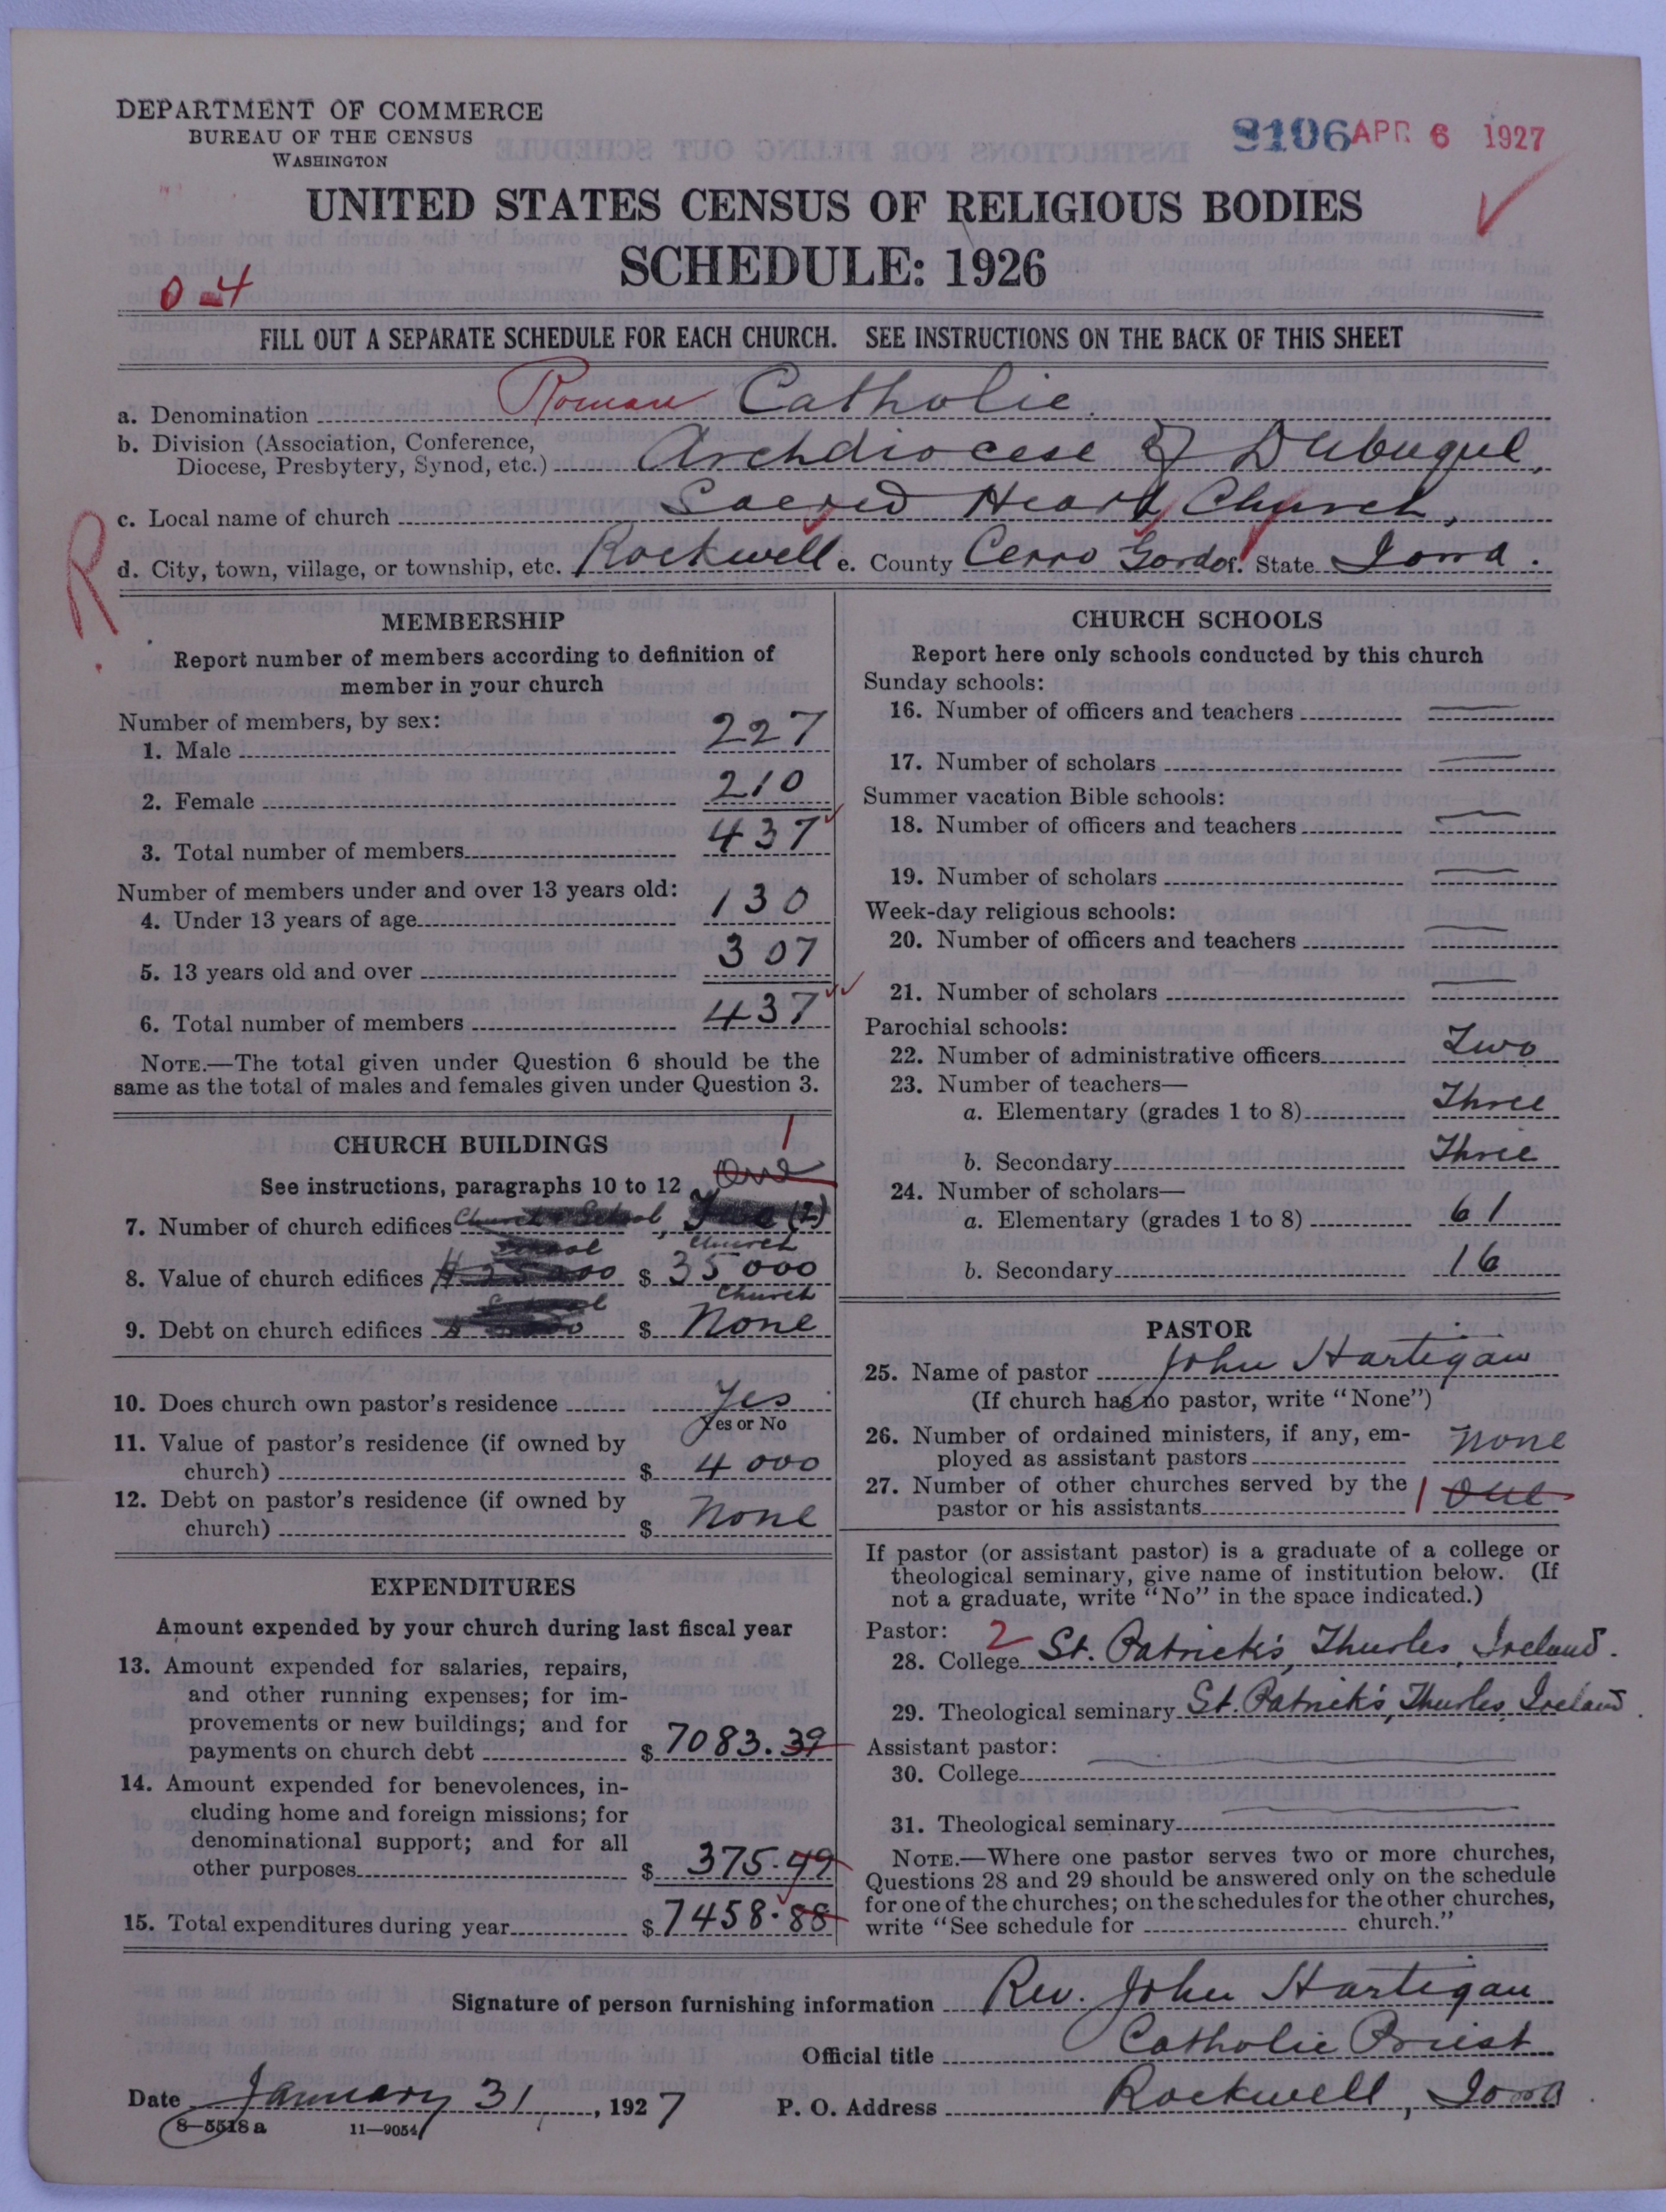 DEPARTMENT OF COMMERCE
BUREAU OF THE CENSUS
WASHINGTON
9106 APR 6 1927
UNITED STATES CENSUS OF RELIGIOUS BODIES
SCHEDULE: 1926
0-4
FILL OUT A SEPARATE SCHEDULE FOR EACH CHURCH. SEE INSTRUCTIONS ON THE BACK OF THIS SHEET
a. Denomination Roman Catholic.
b. Division (Association, Conference,
Diocese, Presbytery, Synod, etc.) Archdiocese of Dubuque,
c. Local name of church Sacred Heart Church,
d. City, town, village, or township, etc. Rockwell e. County Cerro Gordo f. State Iowa.
R
MEMBERSHIP
Report number of members according to definition of
member in your church
Number of members, by sex:
1. Male 227
2. Female 210
3. Total number of members 437
Number of members under and over 13 years old:
4. Under 13 years of age 130
5. 13 years old and over 307
6. Total number of members 437
NOTE.—The total given under Question 6 should be the
same as the total of males and females given under Question 3.
CHURCH BUILDINGS
1
See instructions, paragraphs 10 to 12 One
7. Number of church edifices Church School, (2)
School Church
8. Value of church edifices $ 35000
School Church
9. Debt on church edifices $ None
10. Does church own pastor's residence Yes
Yes or No
11. Value of pastor's residence (if owned by
church) $ 4000
12. Debt on pastor's residence (if owned by
church) $ None
EXPENDITURES
Amount expended by your church during last fiscal year
13. Amount expended for salaries, repairs,
and other running expenses; for im-
provements or new buildings; and for
payments on church debt $ 7083.39
14. Amount expended for benevolences, in-
cluding home and foreign missions; for
denominational support; and for all
other purposes $ 375.49
15. Total expenditures during year $ 7458.88
CHURCH SCHOOLS
Report here only schools conducted by this church
Sunday schools:
16. Number of officers and teachers
17. Number of scholars
Summer vacation Bible schools:
18. Number of officers and teachers
19. Number of scholars
Week-day religious schools:
20. Number of officers and teachers
21. Number of scholars
Parochial schools:
22. Number of administrative officers Two
23. Number of teachers—
a. Elementary (grades 1 to 8) Three
b. Secondary Three
24. Number of scholars—
a. Elementary (grades 1 to 8) 61
b. Secondary 16
PASTOR
25. Name of pastor John Hartigan
(If church has no pastor, write "None")
26. Number of ordained ministers, if any, em-
ployed as assistant pastors none
27. Number of other churches served by the
pastor or his assistants 1 One
If pastor (or assistant pastor) is a graduate of a college or
theological seminary, give name of institution below. (If
not a graduate, write "No" in the space indicated.)
Pastor: 2
28. College St. Patrick's, Thurles, Ireland.
29. Theological seminary St. Patrick's, Thurles, Ireland.
Assistant pastor:
30. College
31. Theological seminary
NOTE.—Where one pastor serves two or more churches,
Questions 28 and 29 should be answered only on the schedule
for one of the churches; on the schedules for the other churches,
write "See schedule for church."
Signature of person furnishing information Rev. John Hartigan
Official title Catholic Priest
Date January 31, 1927 P. O. Address Rockwell, Iowa.
8—5518a 11—9054